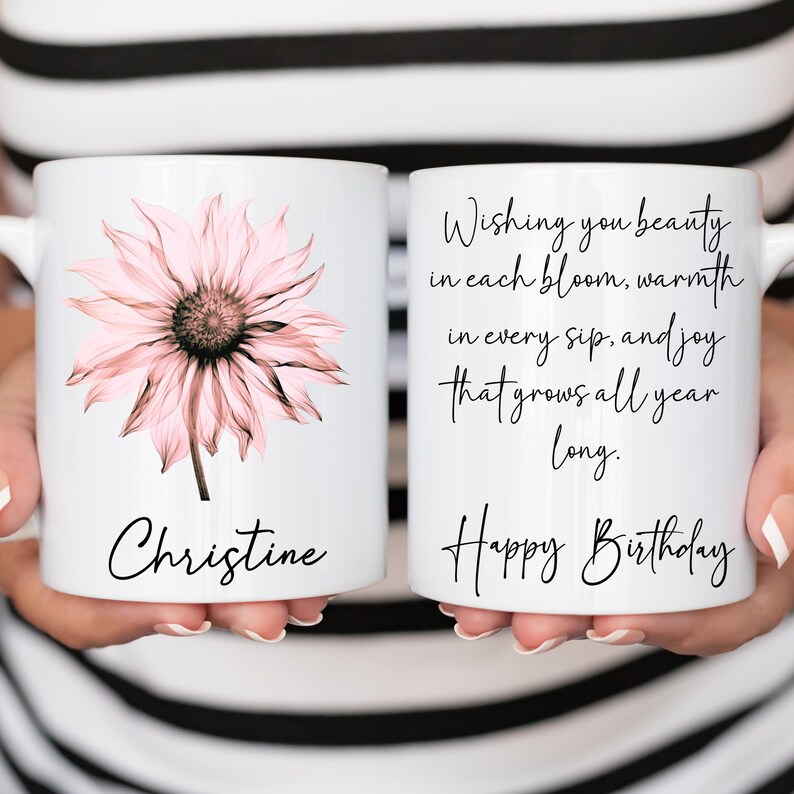 Christine
Wishing you beauty
in each bloom, warmth
in every sip, and joy
that grows all year
long.
Happy Birthday